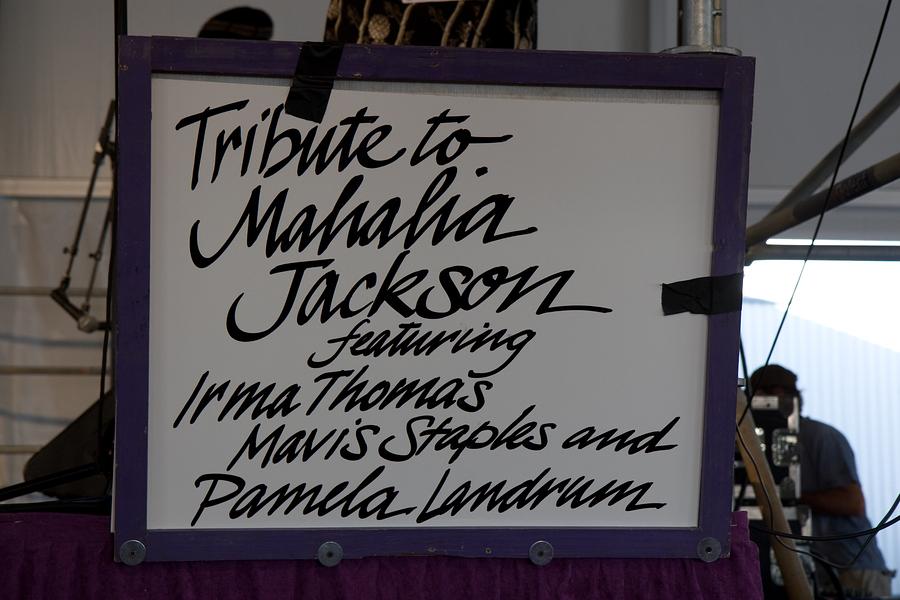 Tribute to
Mahalia
Jackson
featuring
Irma Thomas
Mavis Staples and
Pamela Landrum